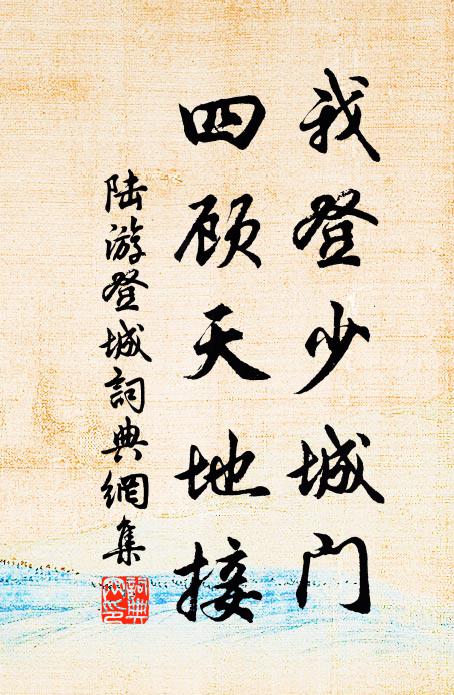 我登少城门
四顾天地接
陆游登城詞典網集